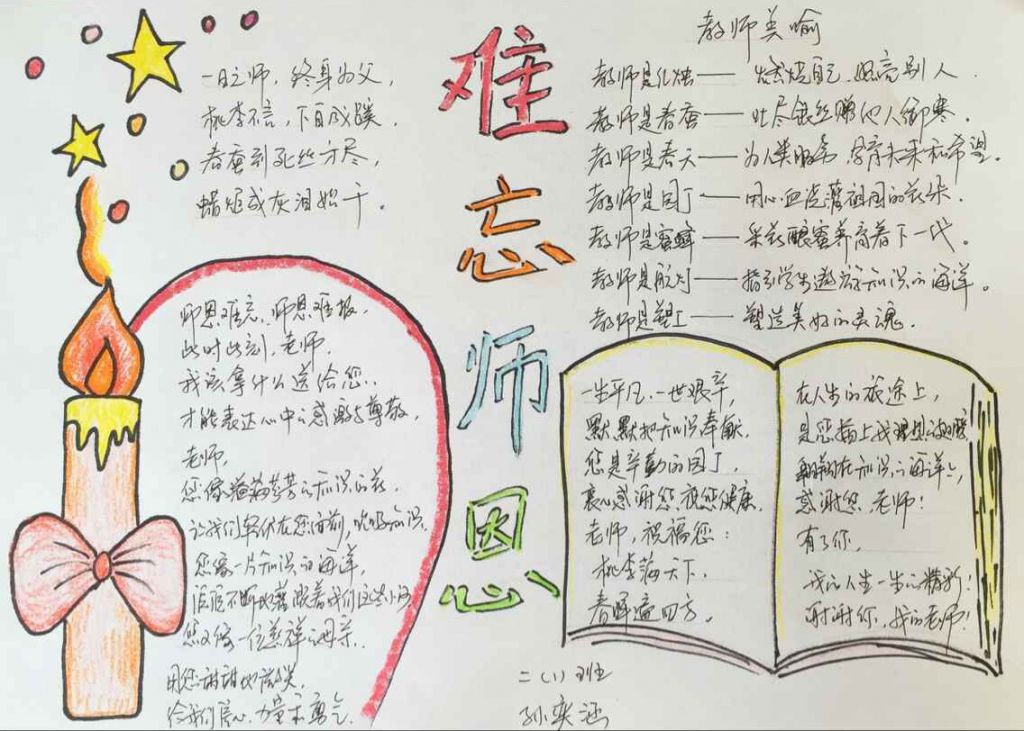 一日之师，终身为父，
桃李不言，下自成蹊。
春蚕到死丝方尽，
蜡炬成灰泪始干。
难忘师恩
教师美喻
教师是红烛——燃烧自己，照亮别人。
教师是春蚕——吐尽银丝赠他人御寒。
教师是春天——为人类服务，孕育未来和希望。
教师是园丁——用心血浇灌祖国的花朵。
教师是蜜蜂——采花酿蜜养育着下一代。
教师是航灯——指引学生遨游知识的海洋。
教师是塑工——塑造美好的灵魂。
师恩难忘，师恩难报，
此时此刻，老师，
我该拿什么送给您，
才能表达心中的感激与尊敬，
老师，
您像 芬芳的知识的花，
让我们 伏在您面前，吮吸知识，
您像一片知识的海洋，
不断地 着我们这些小
您又像一位慈祥的母亲，
用您甜甜的微笑
给我们信心、力量和勇气。
一生平凡，一世艰辛，
默默把知识奉献，
您是辛勤的园丁，
衷心感谢您，祝您健康，
老师，祝福您：
桃李满天下，
春晖遍四方。
在人生的旅途上，
是您插上我理想的翅膀
翱翔在知识的海洋，
感谢您，老师！
有了你，
我的人生一生的精彩！
谢谢你，我的老师！
二（1）班
孙奕涵